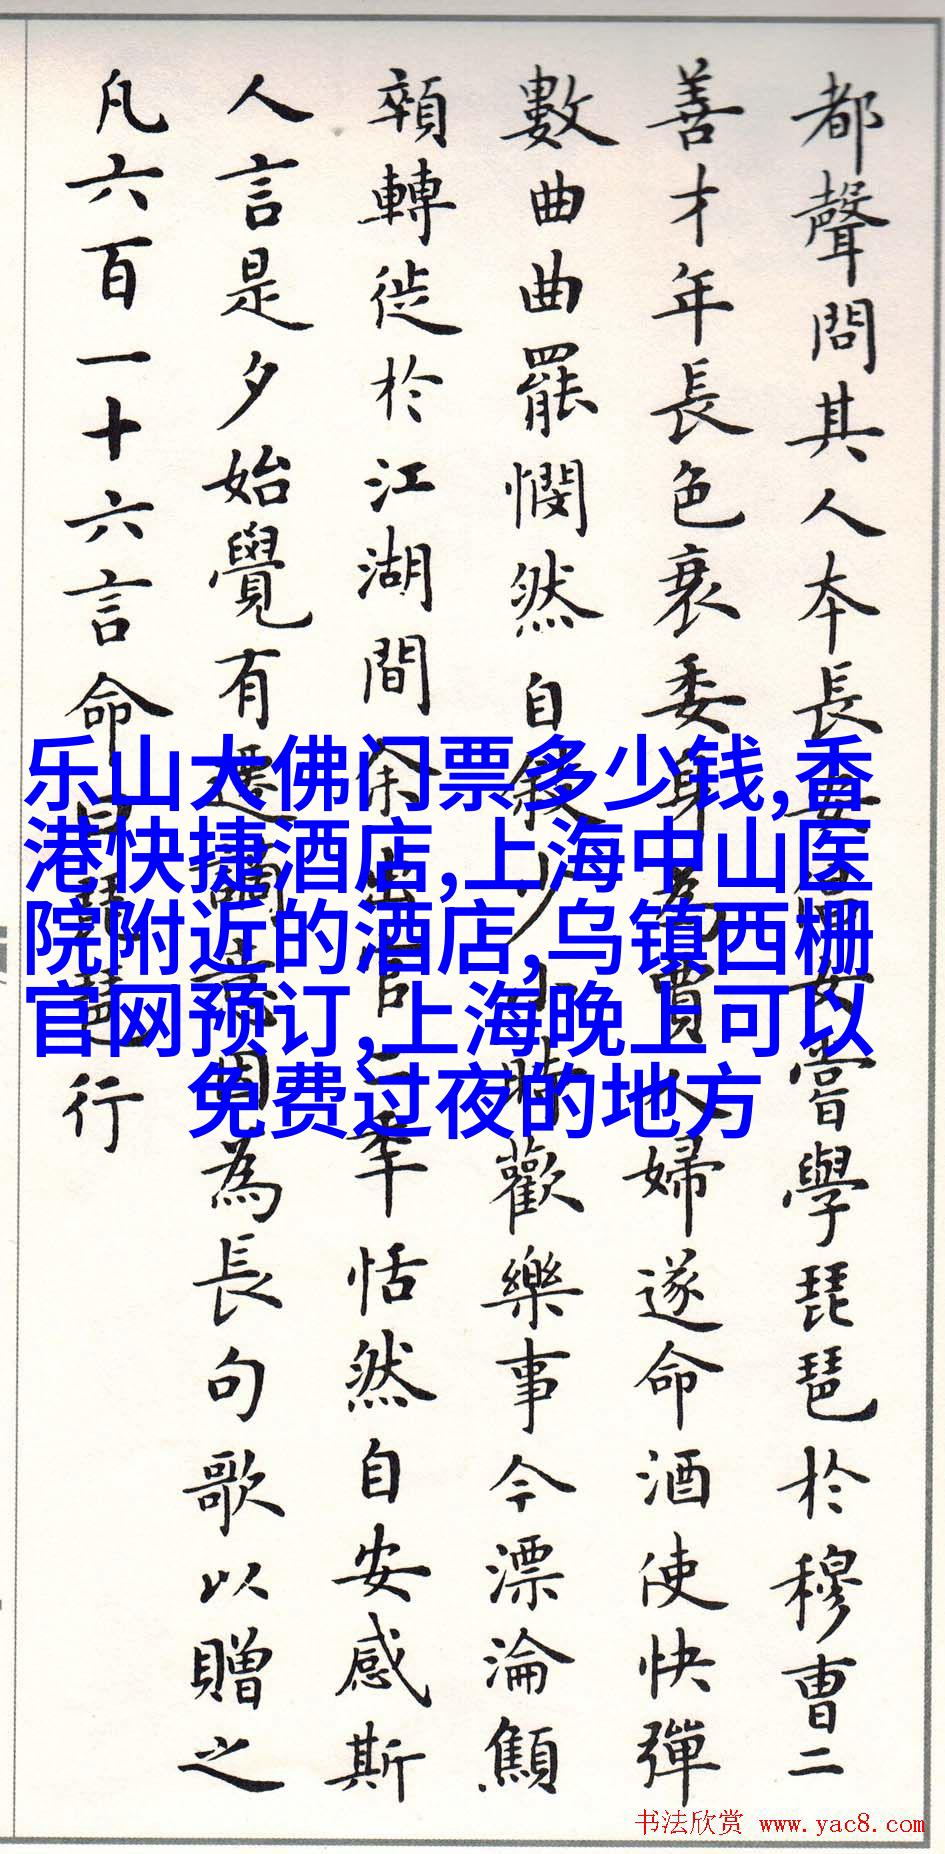 都聲問其人本長安倡女嘗學琵琶於穆曹二
善才年長色衰委身為賈人婦遂命酒使快彈
數曲曲罷憫然自敘少小時歡樂事今漂淪顦
顇轉徙於江湖間余出官二年恬然自安感斯
人言是夕始覺有遷謫意因為長句歌以贈之
凡六百一十六言命曰琵琶行
乐山大佛门票多少钱,香
港快捷酒店,上海中山医
院附近的酒店,乌镇西栅
官网预订,上海晚上可以
免费过夜的地方
书法欣赏 www.yac8.com